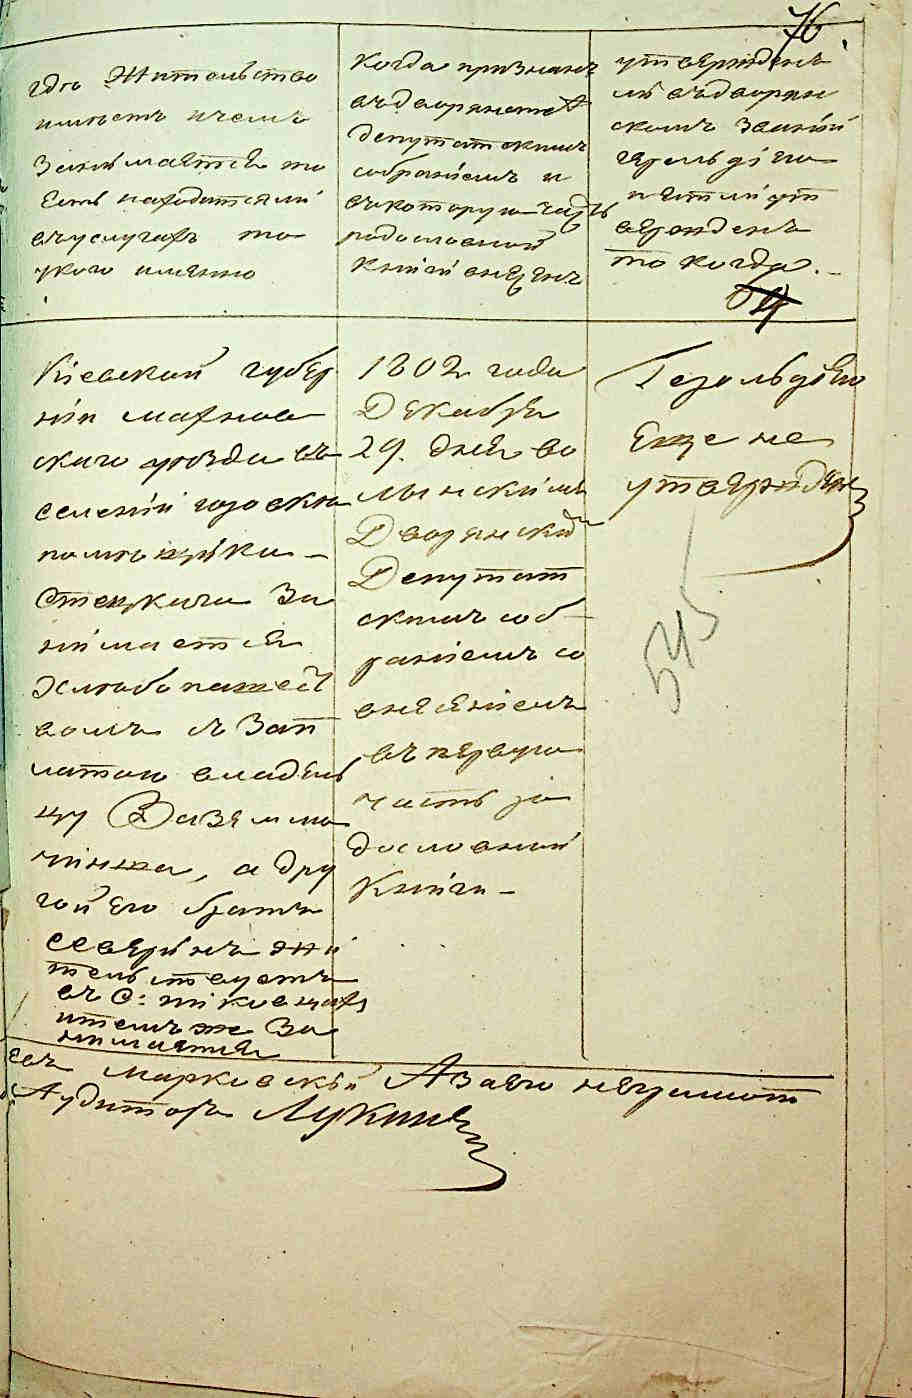 76.
гдѣ жительство
имѣетъ и чемъ
занимается то
есть находится ли
въ услугахъ то
у кого имянно
когда признанъ
въ дворянстве
депутатскимъ
собраніемъ и
въ которую часть
родословной
книги внесенъ
утвержденъ
ли въ дворян
скомъ званіи
герольдіею
и если не утв
вержденъ
то когда.
Кіевской губер
ніи махнов
скаго уѣзда въ
селеніи
помѣщика
Стецкаго за
нимается
хлѣбопашест
вомъ съ зап
латою владель
цу
чинша, а дру
гой его братъ
северинъ жи
тельствуетъ
въ с:
и темъ же за
нимается
1802 года
Декабря
29. дня во
лынскимъ
Дворянскимъ
Депутат
скимъ соб
раніемъ со
внесеніемъ
въ первую
часть ро
дословной
Книги –
Герольдіею
Еще не
утвержденъ
545
марковскій А за его неграмот
Аудиторъ Лукинъ